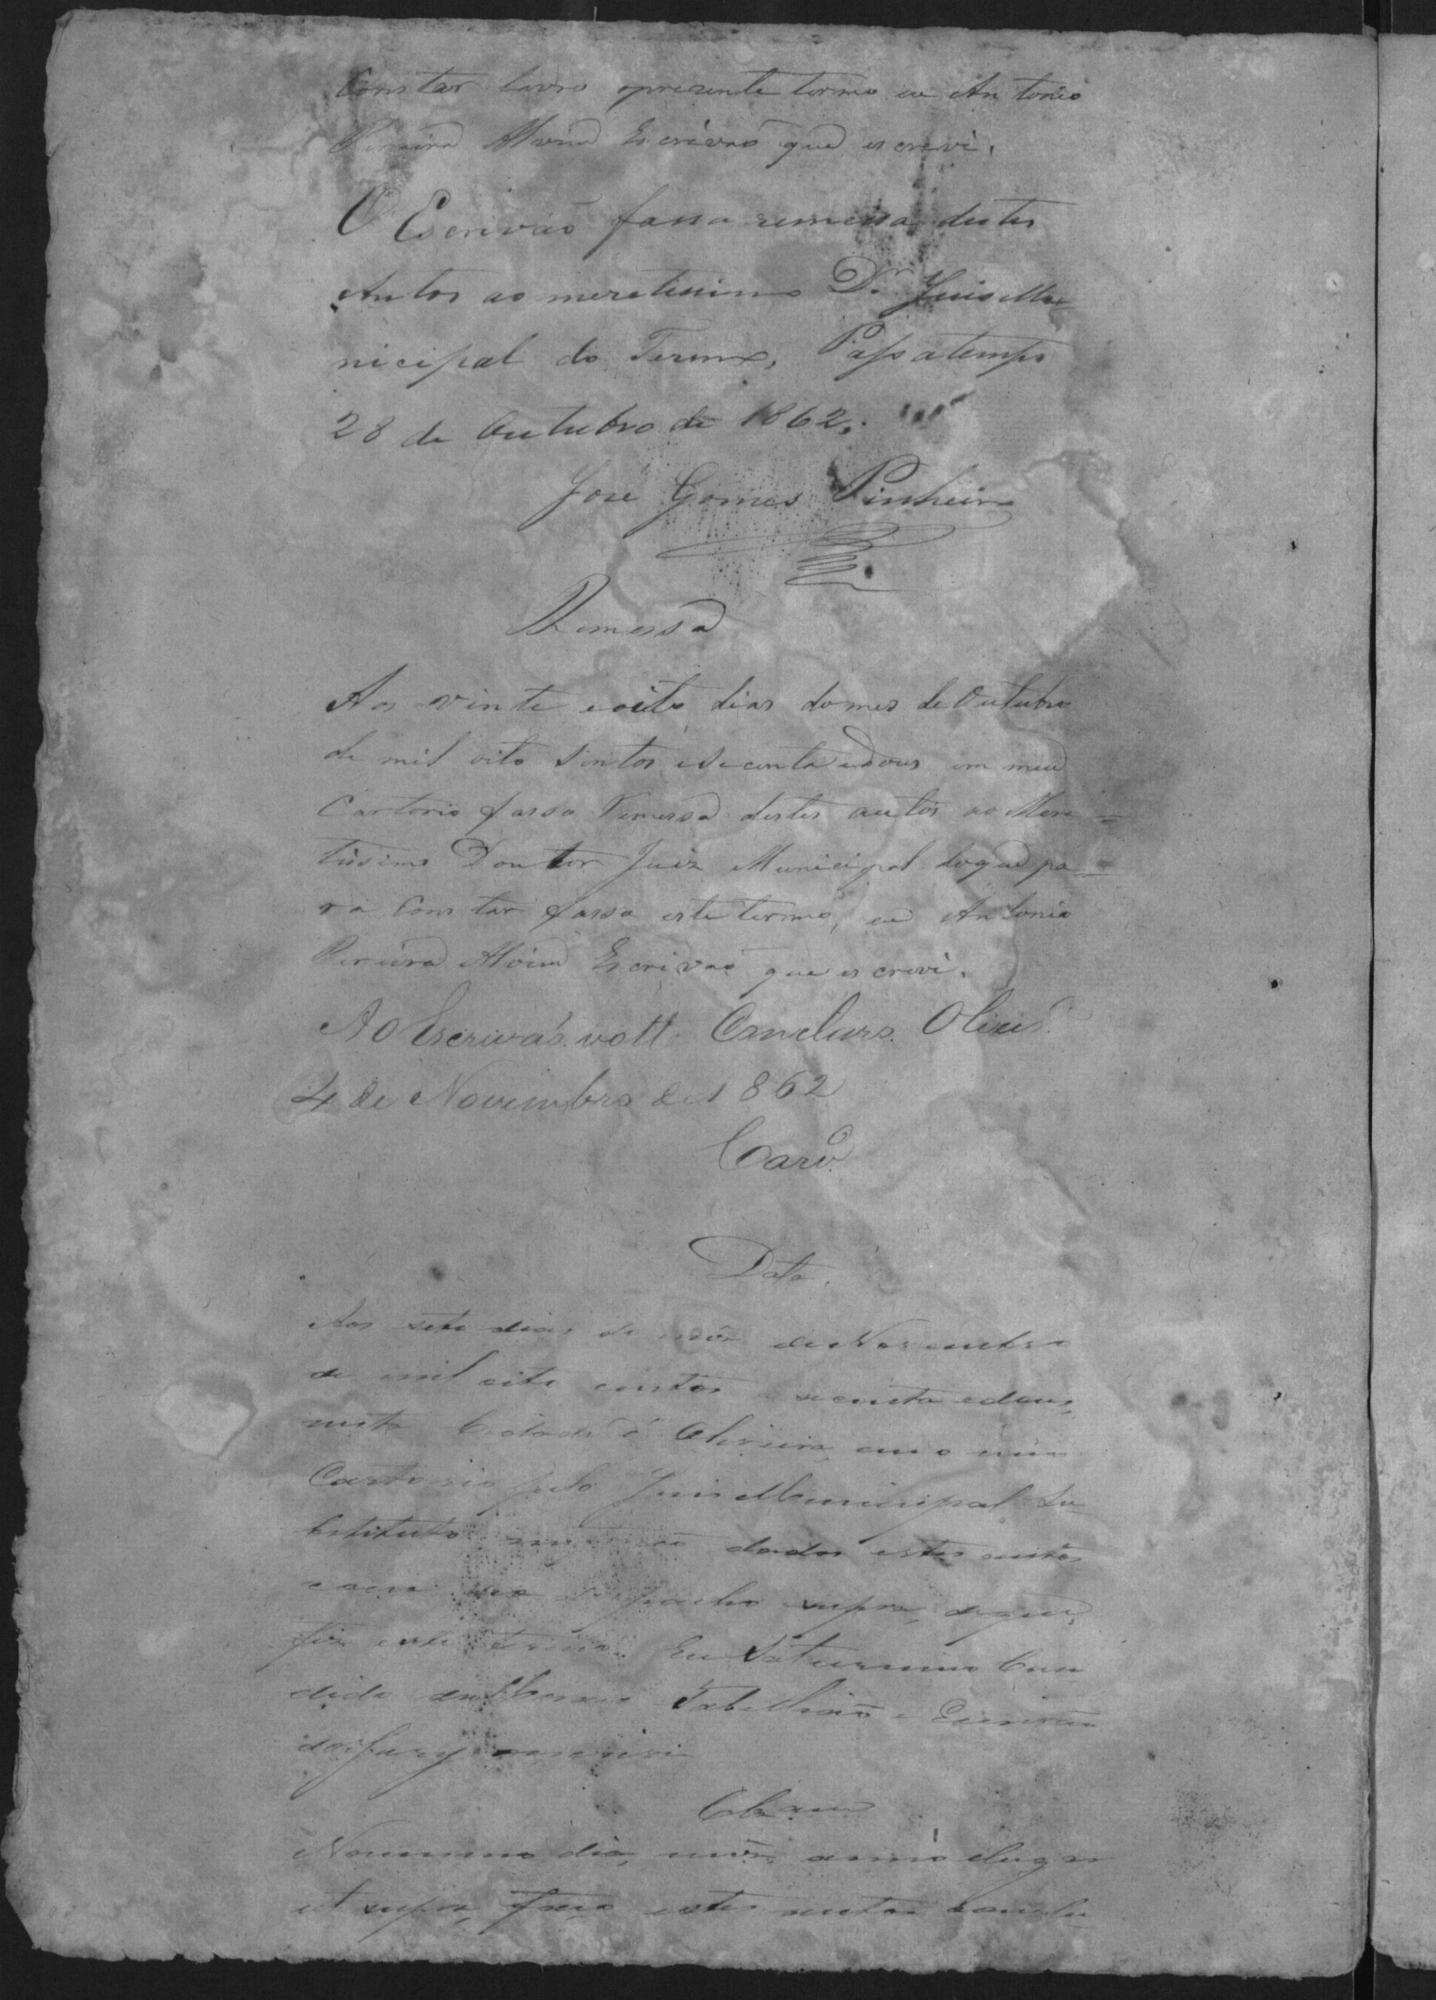 Constar lavro oprezente termo eu Antonio
Pereira Alvim Escrivão que escrevi.
O Escrivão fassa remessa destes
Autos ao meretissimo Dr Juis Mu-
nicipal do Termo, Passatempo
28 de Outubro de 1862.
José Gomes Pinheiro
Remessa
Aos vinte eoito dias domes de Outubro
de mil oito sentos esecenta edous em meu
Cartorio fasso Remessa destes autos ao Mere-
tissimo Doutor Juiz Municipal doque pa-
ra Constar fasso este termo, eu Antonio
Pereira Alvim Escrivão que escrevi.
Ao Escrivão. volt. Concluso. Olivrª
4 de Novembro de 1862
Carvº
Data.
Aos sete dias do mês de Novembro
de mil oito centos e secenta edous,
nesta Cidade d' Oliveira, em o meu
Cartorio pelo Juis Municipal Su-
bstituto me dados estes autos
com seo Despacho supra, doque,
fiz este termo. Eu Saturnino Can
dido de Tabellião e Escrivão
do Jury escrevi
Clsam
Nomesmo dia, mês, anno elugar
et supra, faço estes autos conclu